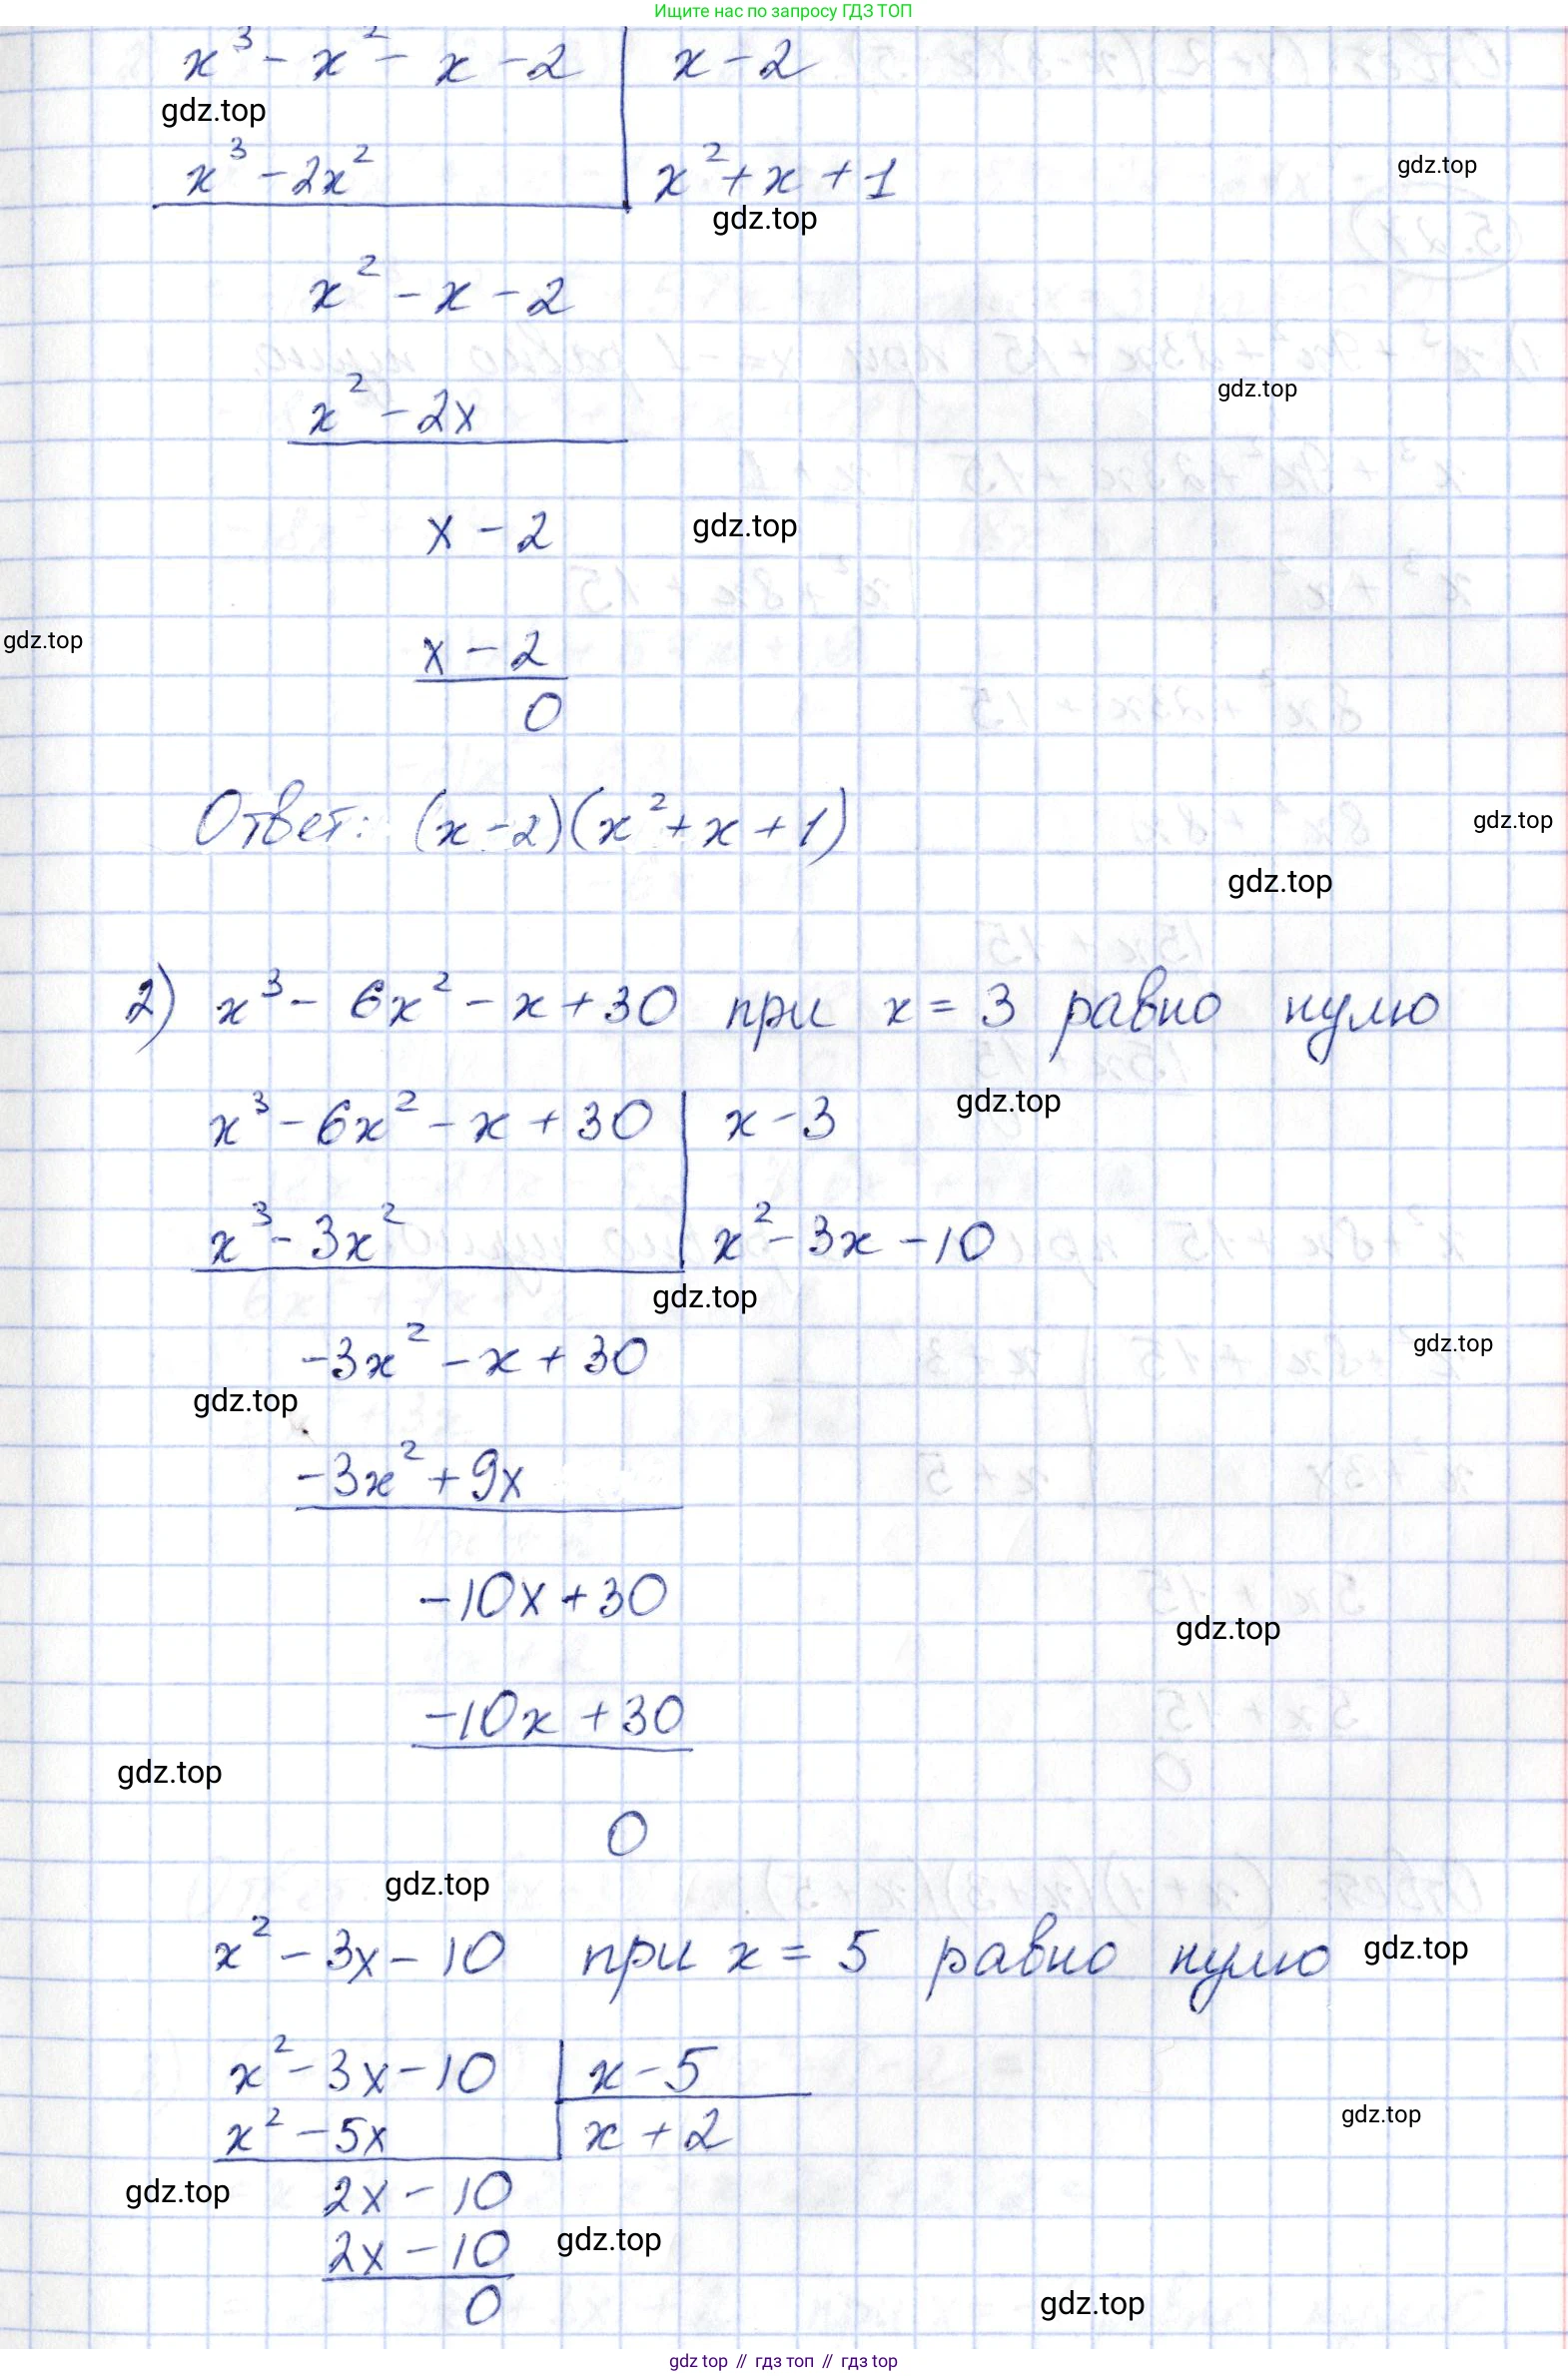 Ищите нас по запросу ГДЗ ТОП
x³ - x² - x - 2 | x - 2
gdz.top
x³ - 2x² | x² + x + 1
gdz.top
gdz.top
x² - x - 2
x² - 2x
gdz.top
x - 2
gdz.top
x - 2
gdz.top
0
Ответ: (x - 2)(x² + x + 1)
gdz.top
gdz.top
2) x³ - 6x² - x + 30 при x = 3 равно нулю
x³ - 6x² - x + 30 | x - 3
gdz.top
x³ - 3x² | x² - 3x - 10
gdz.top
-3x² - x + 30
gdz.top
gdz.top
-3x² + 9x
-10x + 30
gdz.top
-10x + 30
gdz.top
0
gdz.top
x² - 3x - 10 при x = 5 равно нулю
gdz.top
x² - 3x - 10 | x - 5
x² - 5x | x + 2
gdz.top
2x - 10
gdz.top
2x - 10
gdz.top
0
gdz.top
gdz top // гдз топ // гдз top